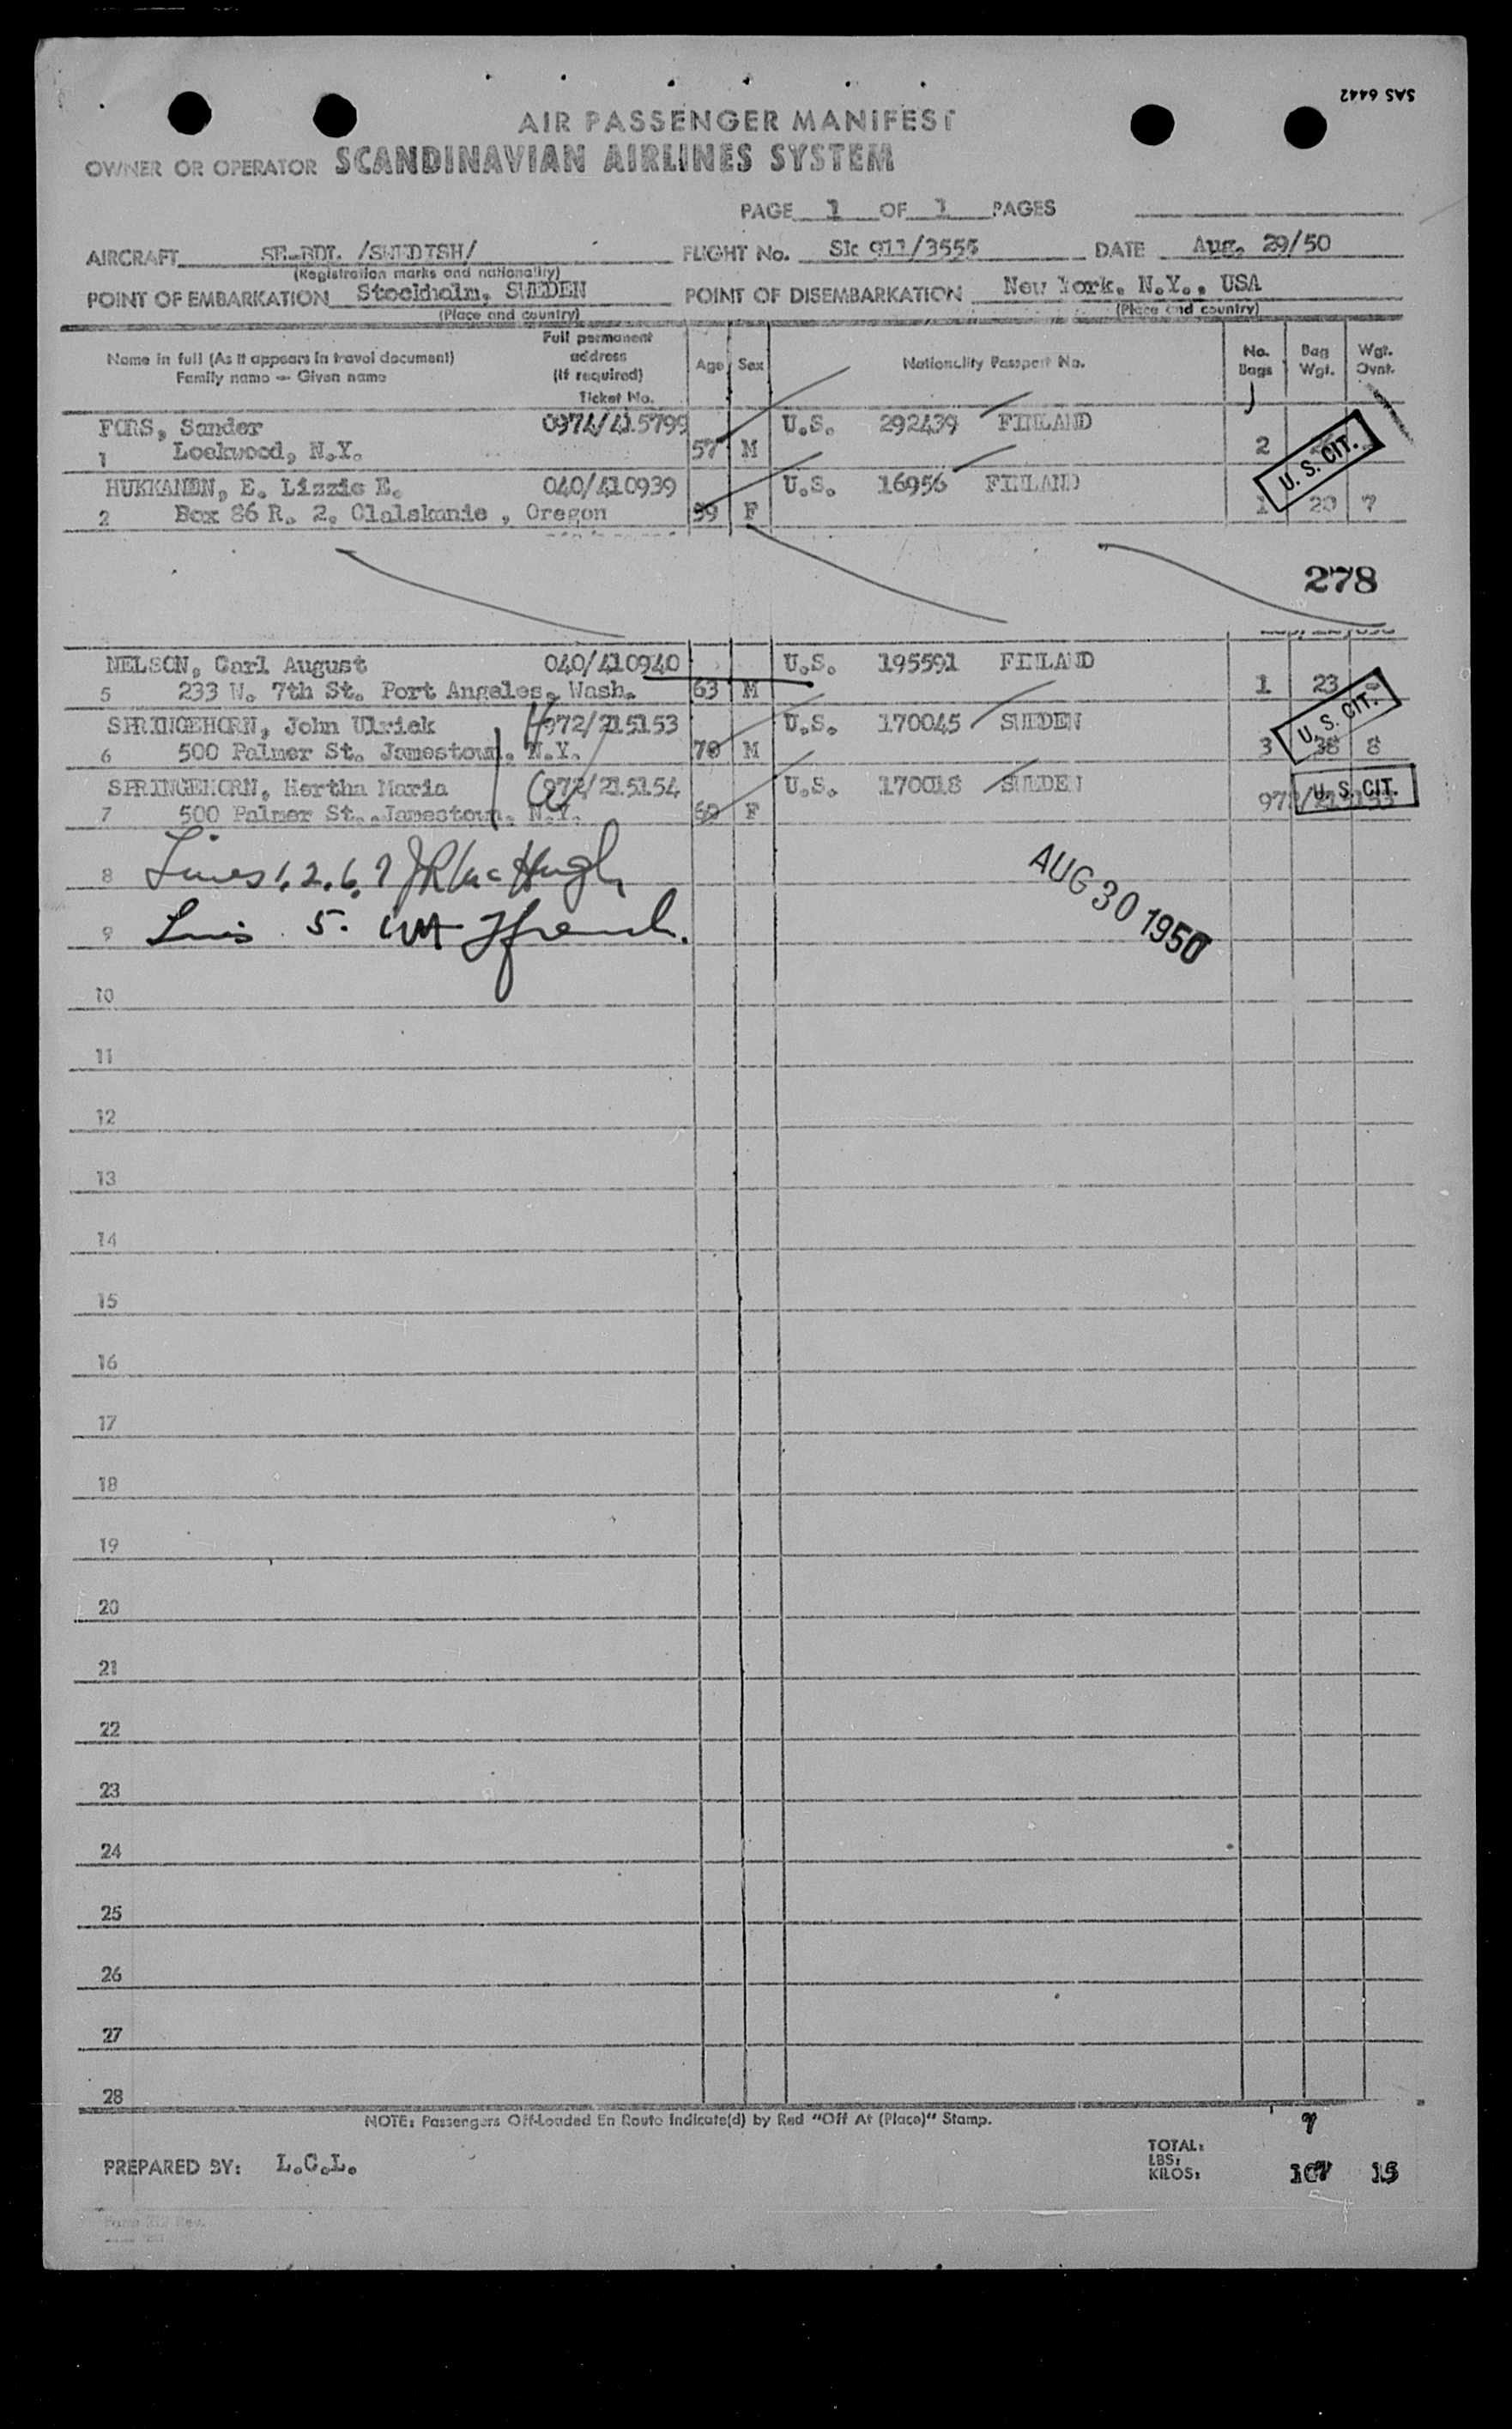 SAS 6442
AIR PASSENGER MANIFEST
OWNER OR OPERATOR SCANDINAVIAN AIRLINES SYSTEM
PAGE 1 OF 1 PAGES
AIRCRAFT SE-BDL /SWEDISH/ FLIGHT No. SK 911/3555 DATE Aug. 29/50
(Registration marks and nationality)
POINT OF EMBARKATION Stockholm, SWEDEN POINT OF DISEMBARKATION New York, N.Y., USA
(Place and country) (Place and country)
Name in full (As it appears in travel document) Family name — Given name Full permanent address (If required) Ticket No. Age Sex Nationality Passport No. No. Bags Bag Wgt. Wgt. Ovnt.
FORS, Sander 0974/415799 U.S. 292439 FINLAND
1 Lockwood, N.Y. 57 M 2
U.S. CIT.
HUKKANEN, E. Lizzie E. 040/410939 U.S. 16956 FINLAND
2 Box 86 R. 2, Clalskanie , Oregon 59 F 1 20 7
278
NELSON, Carl August 040/410940 U.S. 195591 FINLAND
5 233 W. 7th St. Port Angeles, Wash. 63 M 1 23
U.S. CIT.
SPRINGEHORN, John Ulrick 972/215153 U.S. 170045 SWEDEN
6 500 Palmer St. Jamestown, N.Y. 70 M 3 38 8
SPRINGEHORN, Hertha Maria 972/215154 U.S. 170018 SWEDEN
7 500 Palmer St., Jamestown, N.Y. 69 F 972/215153
U.S. CIT.
8 Lines 1, 2, 6, 7 JR McHugh
9 Lines 5.
AUG 30 1950
10
11
12
13
14
15
16
17
18
19
20
21
22
23
24
25
26
27
28
NOTE: Passengers Off-Loaded En Route Indicate(d) by Red "Off At (Place)" Stamp.
7
PREPARED BY: L.C.L.
TOTAL:
LBS:
KILOS: 107 15